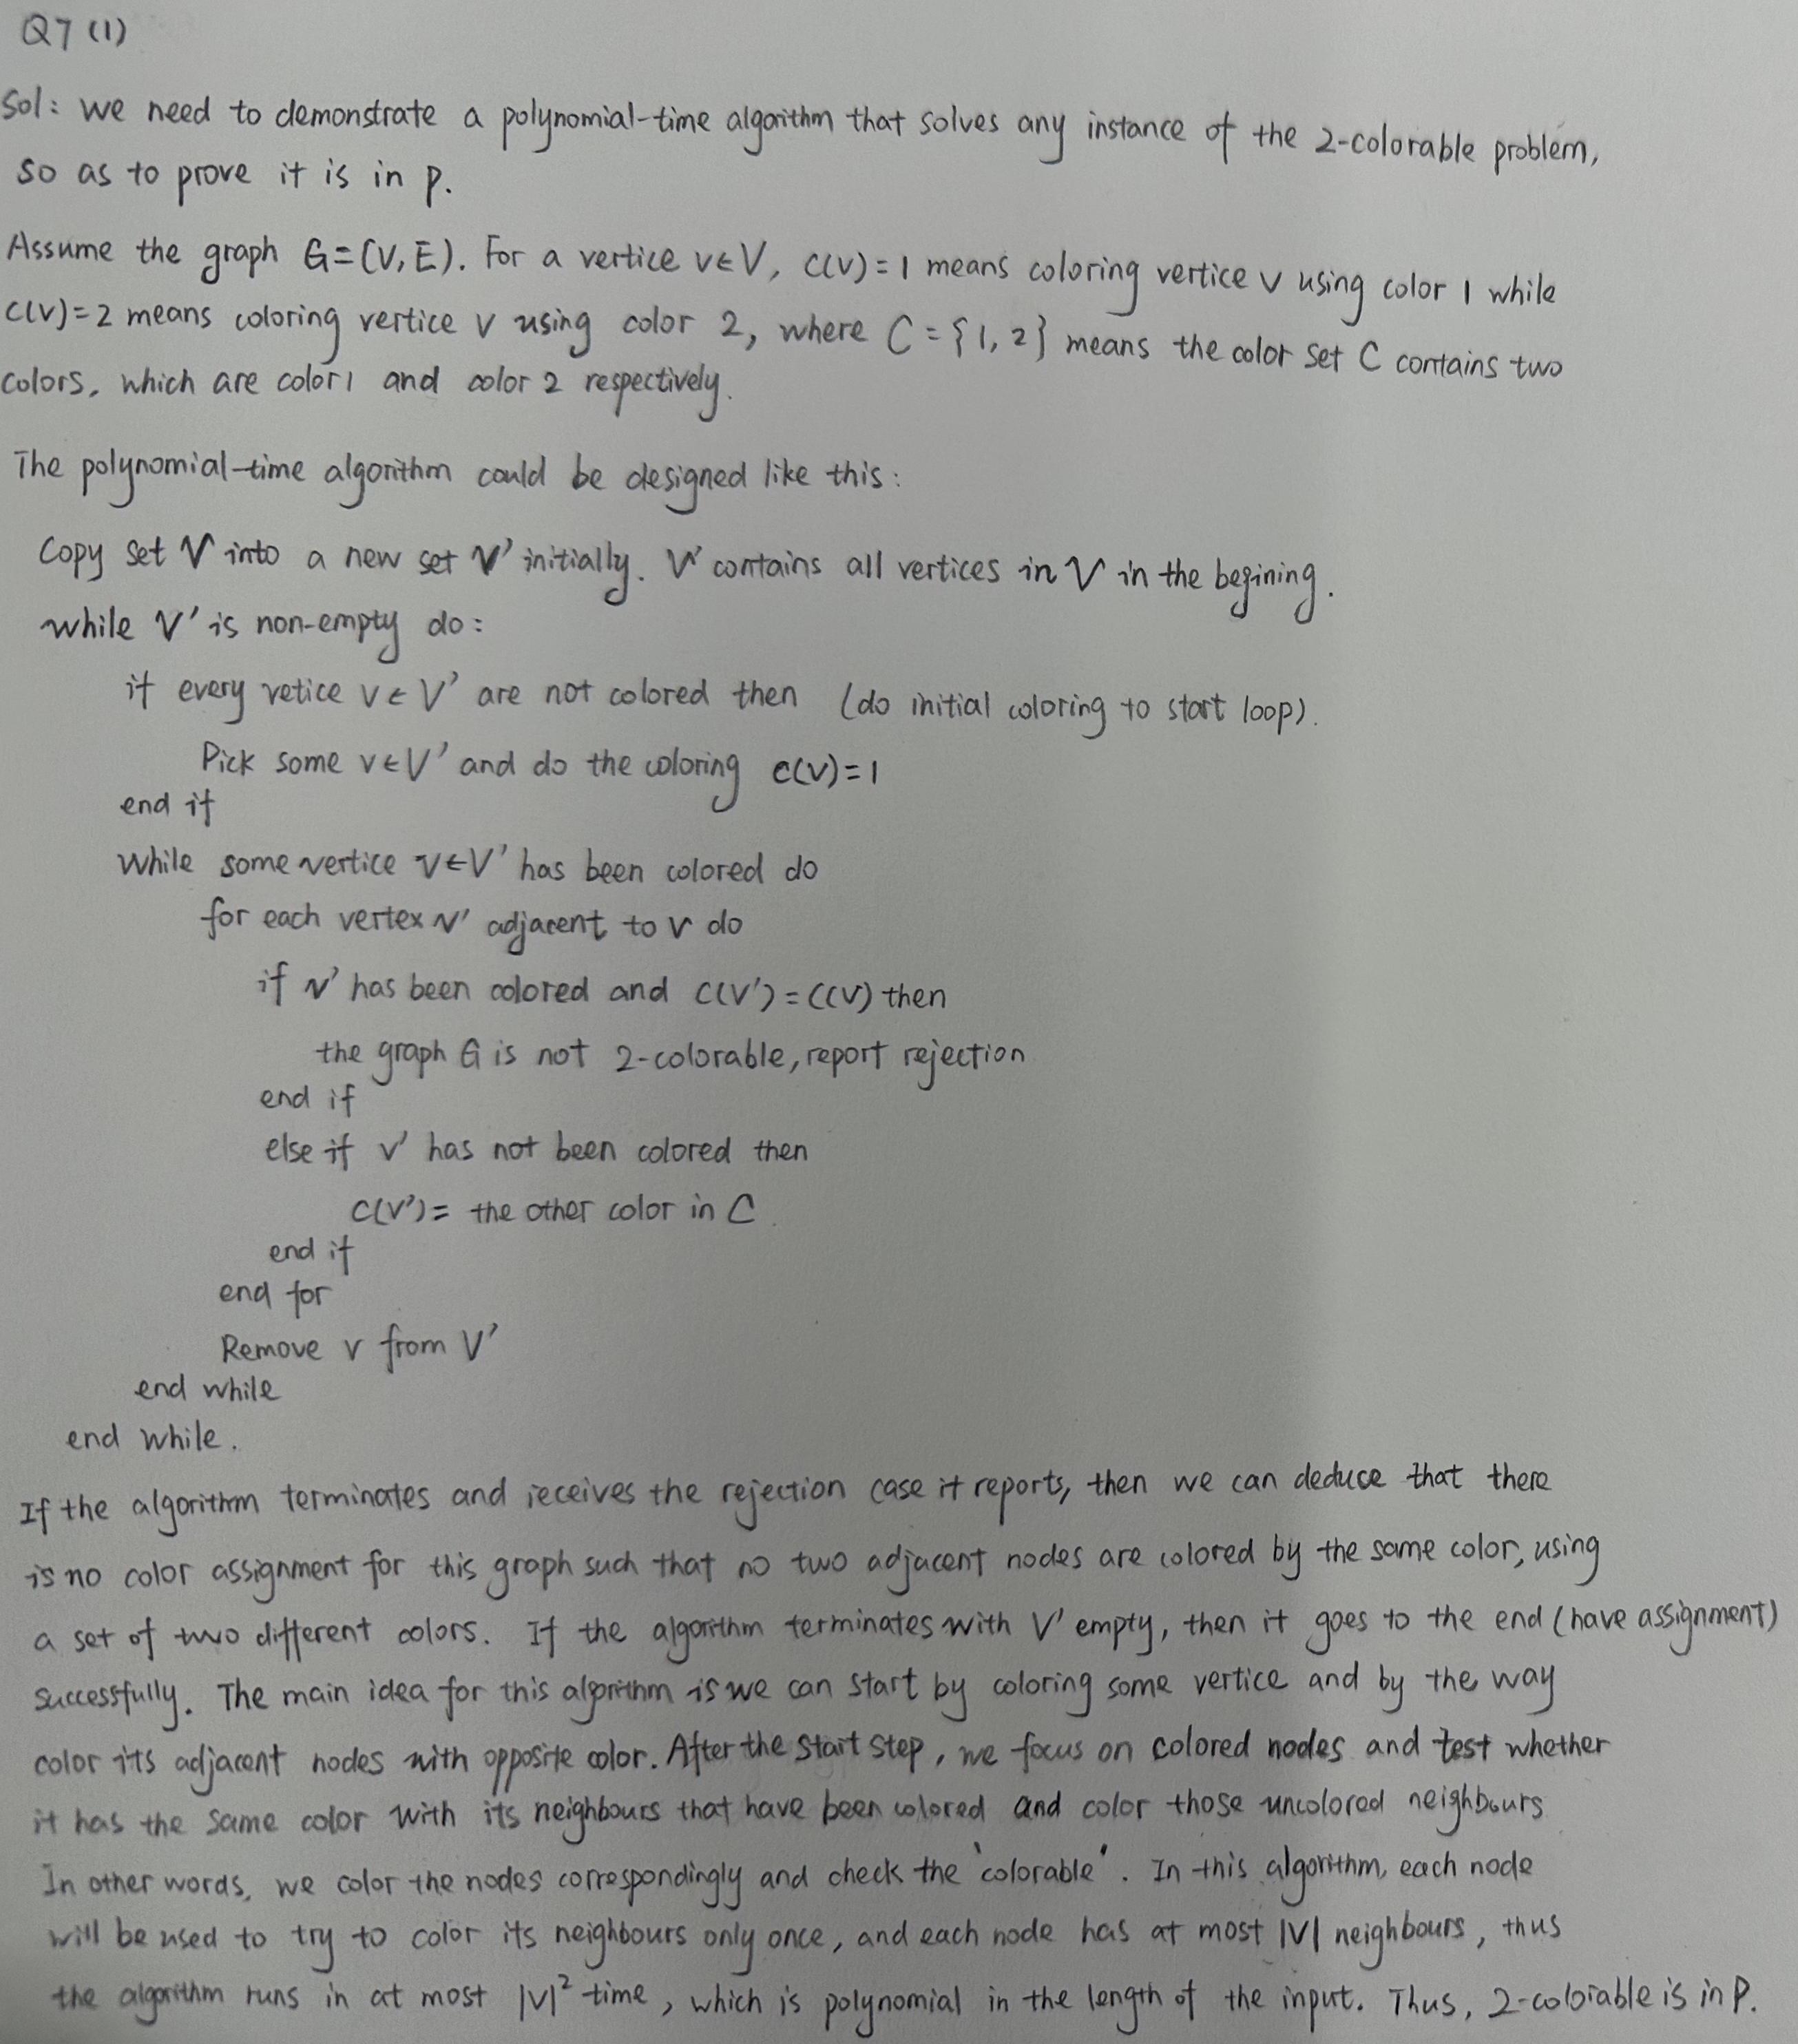 Q7 (1)
Sol: we need to demonstrate a polynomial-time algorithm that solves any instance of the 2-colorable problem,
so as to prove it is in p.
Assume the graph G=(V,E). For a vertice v∈V, c(v)=1 means coloring vertice v using color 1 while
c(v)=2 means coloring vertice v using color 2, where C={1,2} means the color set C contains two
colors, which are color1 and color 2 respectively.
The polynomial-time algorithm could be designed like this:
Copy set V into a new set V' initially. V' contains all vertices in V in the begining.
while V' is non-empty do:
if every vetice v∈V' are not colored then (do initial coloring to start loop).
Pick some v∈V' and do the coloring c(v)=1
end if
while some vertice v∈V' has been colored do
for each vertex v' adjacent to v do
if v' has been colored and c(v')=c(v) then
the graph G is not 2-colorable, report rejection
end if
else if v' has not been colored then
c(v')= the other color in C.
end if
end for
Remove v from V'
end while
end while.
If the algorithm terminates and receives the rejection case it reports, then we can deduce that there
is no color assignment for this graph such that no two adjacent nodes are colored by the same color, using
a set of two different colors. If the algorithm terminates with V' empty, then it goes to the end (have assignment)
successfully. The main idea for this algorithm is we can start by coloring some vertice and by the way
color its adjacent nodes with opposite color. After the start step, we focus on colored nodes and test whether
it has the same color with its neighbours that have been colored and color those uncolored neighbours
In other words, we color the nodes correspondingly and check the 'colorable'. In this algorithm, each node
will be used to try to color its neighbours only once, and each node has at most |V| neighbours, thus
the algorithm runs in at most |V|² time, which is polynomial in the length of the input. Thus, 2-colorable is in P.